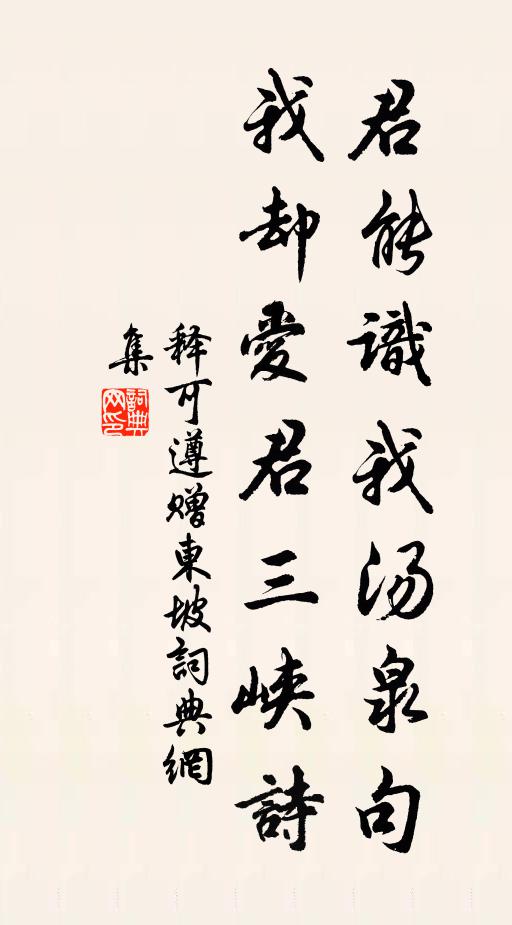 君能識我汤泉句
我却愛君三峡詩
释可遵赠東坡詞典網
集
詞典
网印